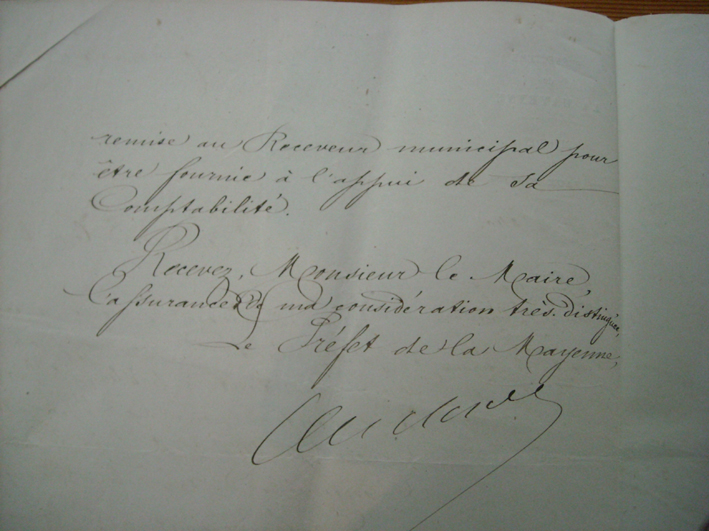 remise au Receveur municipal pour
être fournie à l'appui de sa
Comptabilité.
Recevez, Monsieur le Maire,
l'assurance de ma considération très distinguée,
Le Préfet de la Mayenne,